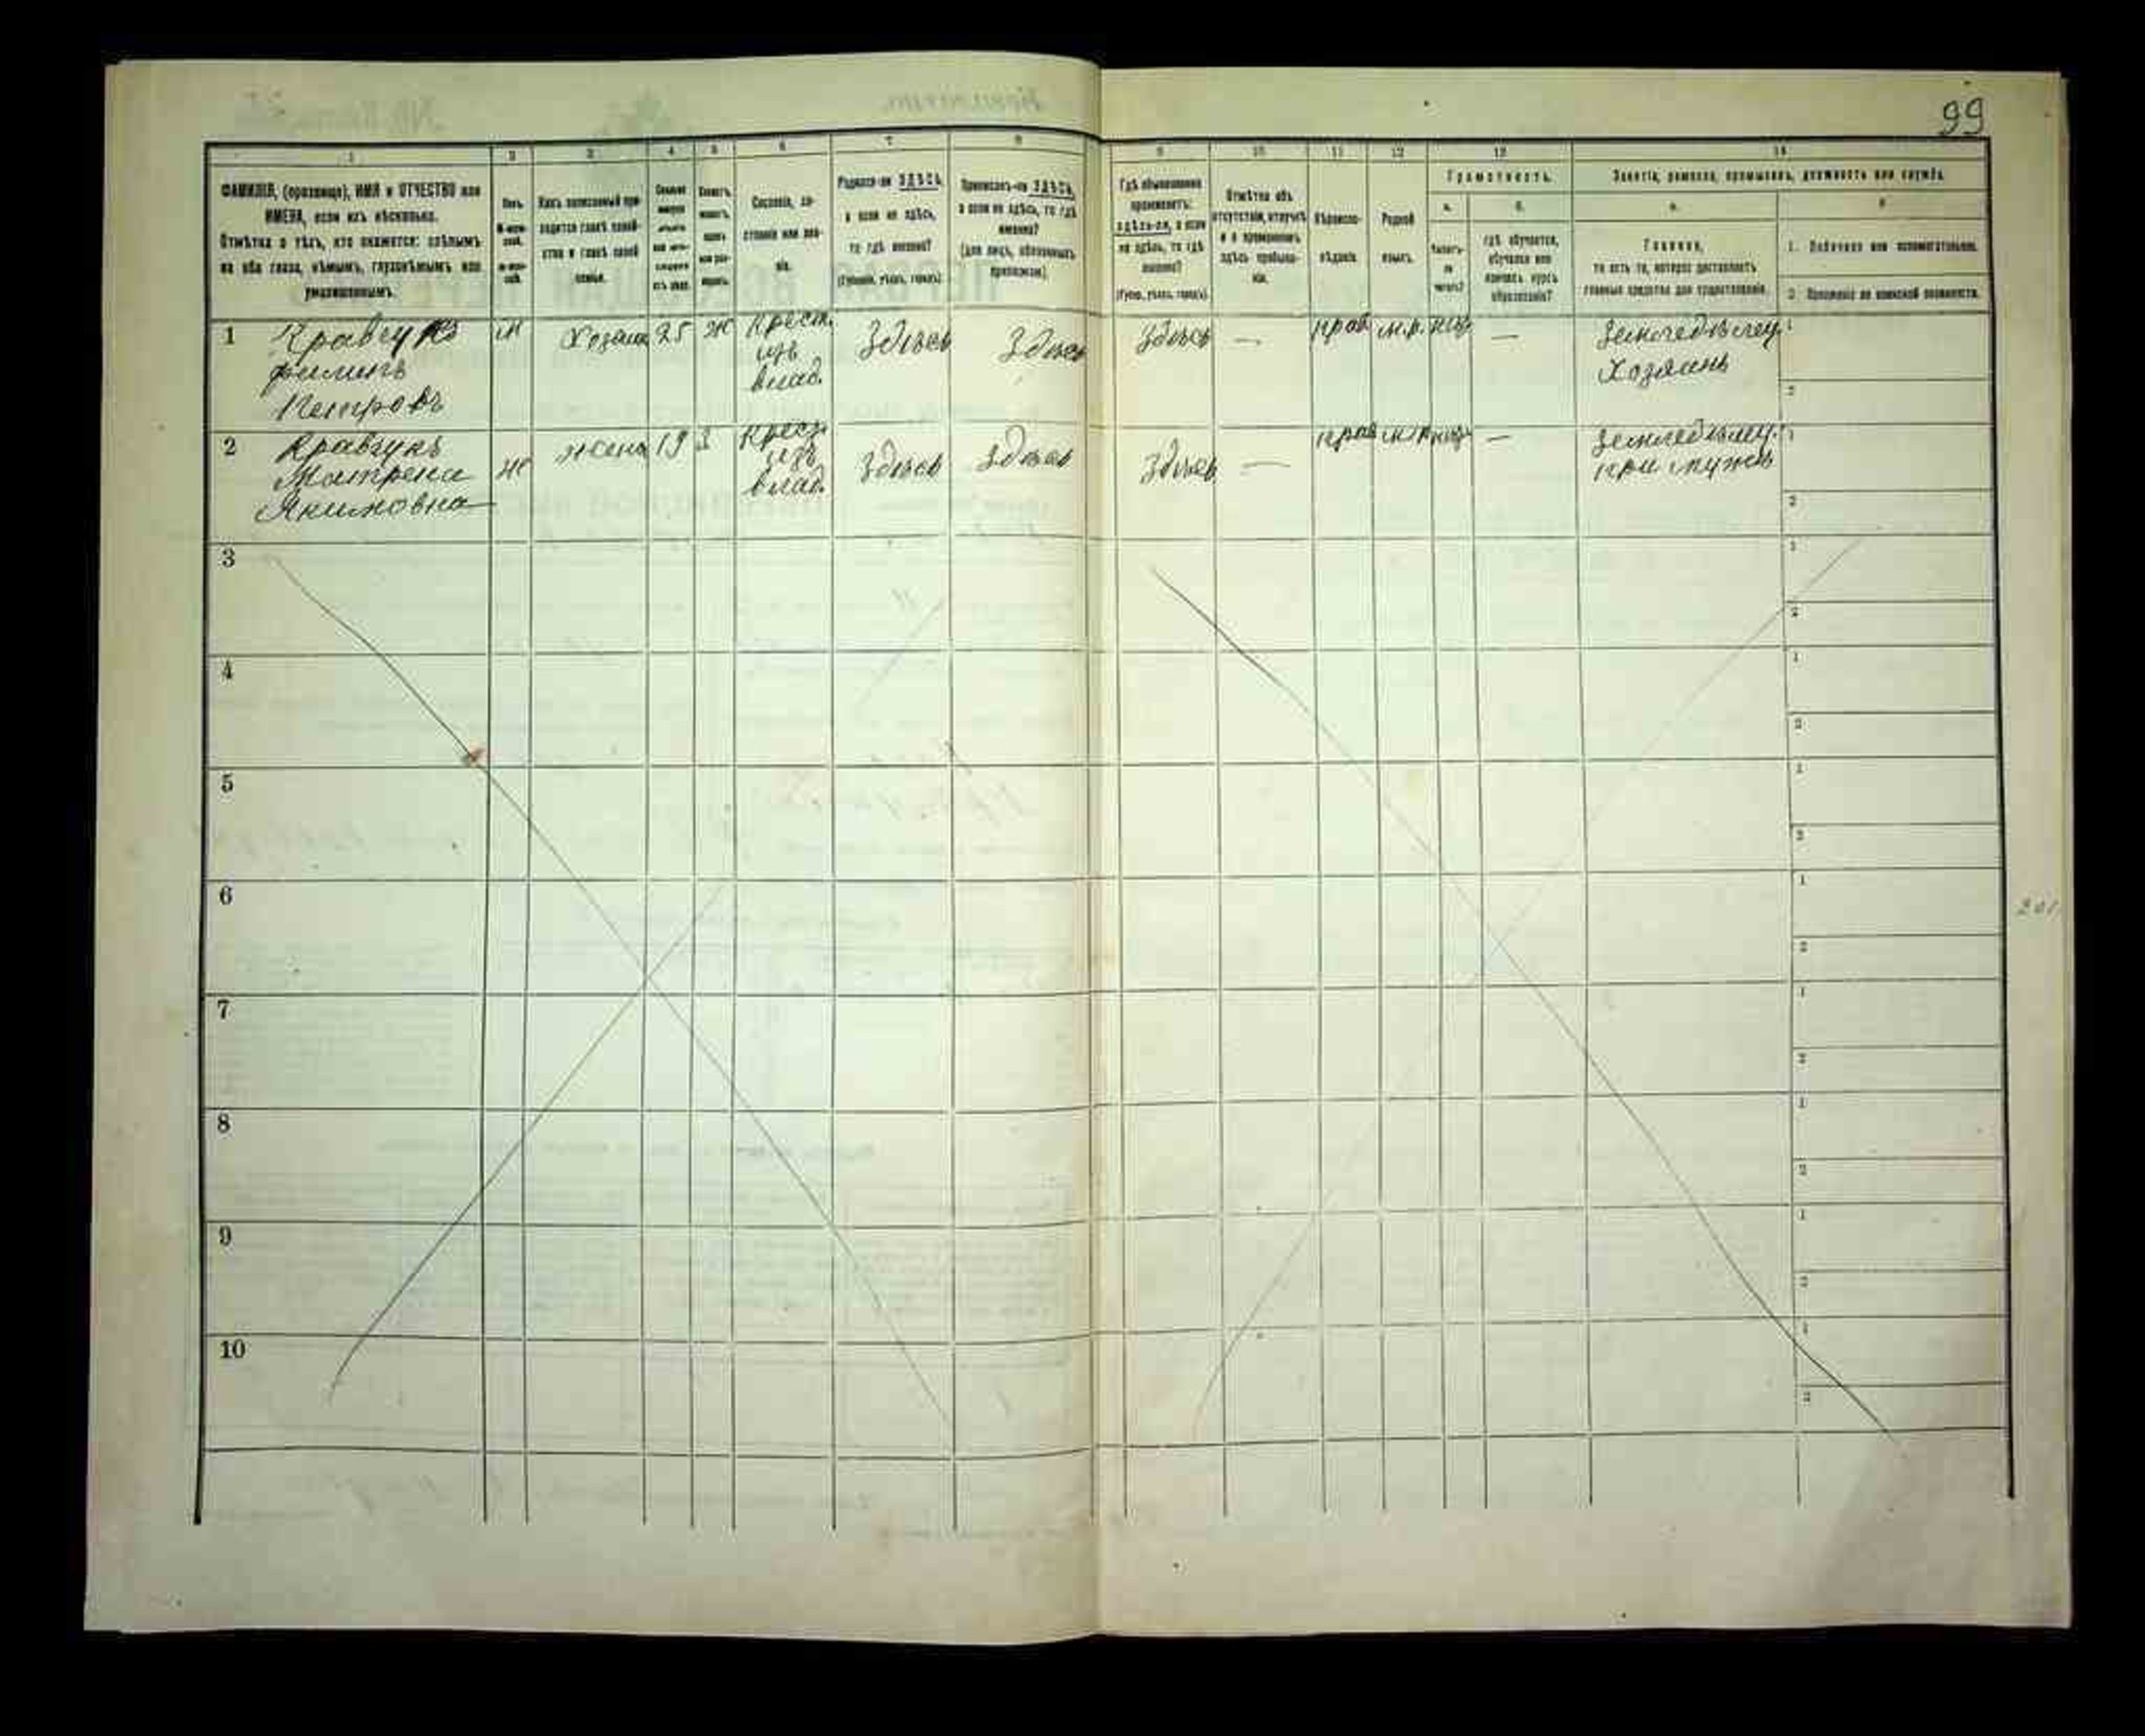 99
1 2 3 4 5 6 7 8 9 10 11 12 13 14
ФАМИЛІЯ, (прозвище), ИМЯ и ОТЧЕСТВО или
ИМЕНА, если ихъ нѣсколько.
Отмѣтка о тѣхъ, кто окажется: слѣпымъ
на оба глаза, нѣмымъ, глухонѣмымъ или
умалишеннымъ.
Полъ.
Какъ записанный при-
ходится главѣ хозяй-
ства и главѣ своей
семьи.
Сословіе, со-
стояніе или зва-
ніе.
Родился-ли ЗДѢСЬ,
а если не здѣсь,
то гдѣ именно?
(Губернія, уѣздъ, городъ)
Приписанъ-ли ЗДѢСЬ,
а если не здѣсь, то гдѣ
именно?
(для лицъ, обязанныхъ
припискою).
Гдѣ обыкновенно
проживаетъ:
здѣсь-ли, а если
не здѣсь, то гдѣ
именно?
(Губер., уѣздъ, городъ)
Отмѣтка объ
отсутствіи, отлучкѣ
и о временномъ
здѣсь пребыва-
ніи.
Вѣроиспо-
вѣданіе.
Родной
языкъ.
Грамотность.
а.
б.
гдѣ обучается,
обучался или
кончилъ курсъ
образованія?
Занятіе, ремесло, промыселъ, должность или служба.
а.
Главное,
то есть то, которое доставляетъ
главныя средства для существованія.
1. Побочное или вспомогательное.
2. Положеніе по воинской повинности.
1 Кравчукъ
Филипъ
Петровъ
М Хозяинъ 25 Ж Крест.
изъ
влад.
Здѣсь Здѣсь Здѣсь — прав м.р. —
Земледѣлец.
Хозяинъ
1
2
2 Кравчукъ
Матрена
Якимовна
Ж жена 19 З Крест.
изъ
влад.
Здѣсь Здѣсь Здѣсь — прав м.р. —
Земледѣлец.
при мужѣ
1
2
3 1
2
4 1
2
5 1
2
6 1
2
7 1
2
8 1
2
9 1
2
10 1
2